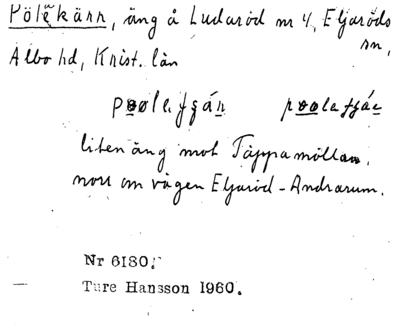 Pölekärr, äng å Ludaröd nr 4, Eljaröds
sn,
Albo hd, Krist. län
liten äng mot Täppamöllan,
norr om vägen Eljaröd-Andrarum.
Nr 6180.
Ture Hansson 1960.